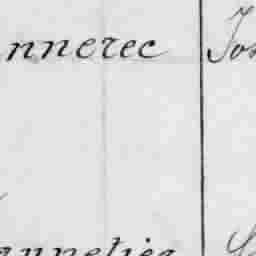 nnerec Jos
annetier